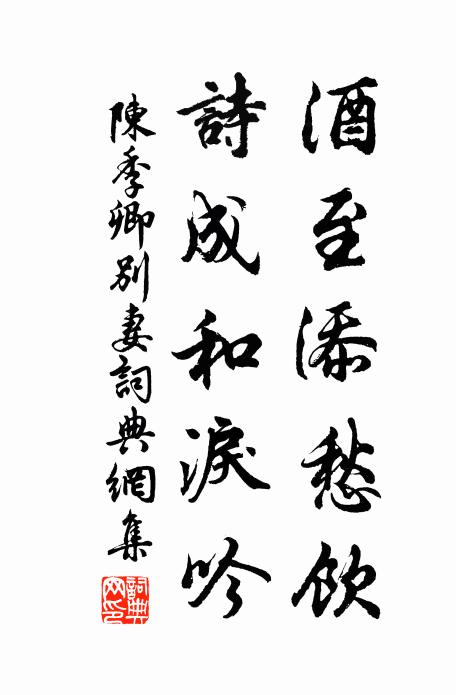 酒至添愁飲
詩成和淚吟
陳季卿別妻詞典網集
詞典網印